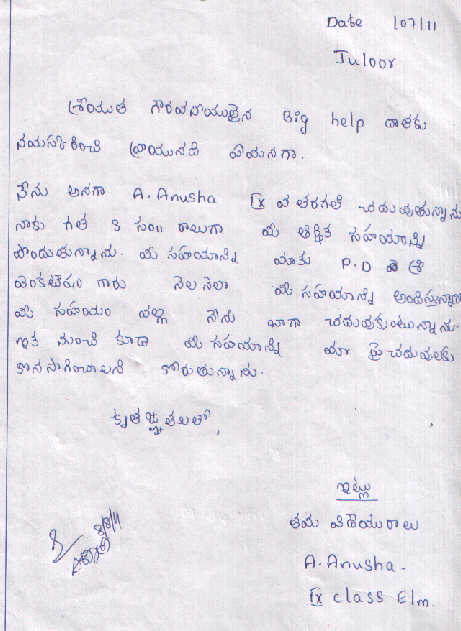 Date /07/11
Tuloor
శ్రీయుత గౌరవనీయులైన Big help దాతకు
నమస్కరించి వ్రాయునది ఏమనగా.
నేను అనగా A. Anusha IX వ తరగతి చదువుతున్నాను
నాకు గత 3 సం॥ రాలుగా మీ ఆర్థిక సహాయాన్ని
పొందుతున్నాను. మీ సహయాన్ని మాకు P.D శ్రీ
వెంకటేషం గారు నెల నెలా మీ సహయాన్ని అందిస్తున్నారు
మీ సహయం వల్ల నేను బాగా చదువుకుంటున్నాను.
ఇక నుంచి కూడా మీ సహయాన్ని మా పై చదువులకు
కొనసాగించాలని కోరుతున్నాను.
కృతజ్ఞతలతో,
ఇట్లు
తమ విధేయురాలు
A. Anusha.
IX class Elm.
8/8/11